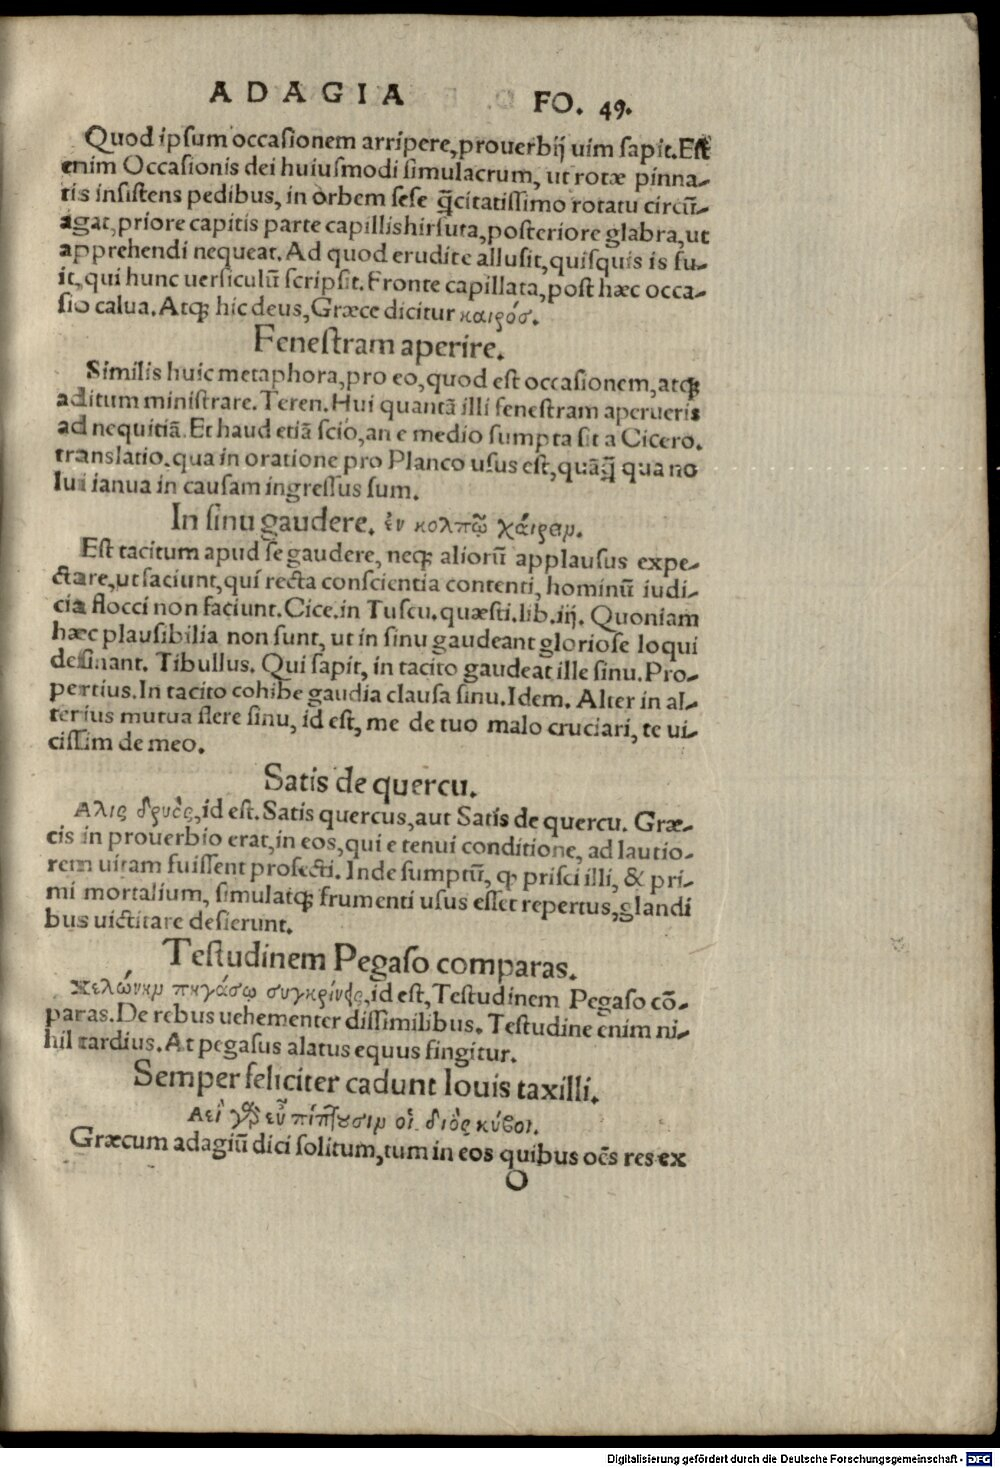 ADAGIA FO. 49.
Quod ipsum occasionem arripere, prouerbij uim sapit. Est
enim Occasionis dei huiusmodi simulacrum, ut rotæ pinna-
tis insistens pedibus, in orbem sese q̃citatissimo rotatu circũ-
agat, priore capitis parte capillis hirsuta, posteriore glabra, ut
apprehendi nequeat. Ad quod erudite allusit, quisquis is fu-
it, qui hunc uersiculũ scripsit. Fronte capillata, post hæc occa-
sio calua. Atq; hic deus, Græce dicitur καιρόσ.
Fenestram aperire.
Similis huic metaphora, pro eo, quod est occasionem, atq;
aditum ministrare. Teren. Hui quantã illi fenestram aperueris
ad nequitiã. Et haud etiã scio, an e medio sumpta sit a Cicero.
translatio. qua in oratione pro Planco usus est, quãq̃ qua no
lui ianua in causam ingressus sum.
In sinu gaudere. ἐν κολπῷ χάιρειν.
Est tacitum apud se gaudere, neq; aliorũ applausus expe-
ctare, ut faciunt, qui recta conscientia contenti, hominũ iudi-
cia flocci non faciunt. Cice. in Tuscu. quæsti. lib. iij. Quoniam
hæc plausibilia non sunt, ut in sinu gaudeant gloriose loqui
desinant. Tibullus. Qui sapit, in tacito gaudeat ille sinu. Pro-
pertius. In tacito cohibe gaudia clausa sinu. Idem. Alter in al-
terius mutua flere sinu, id est, me de tuo malo cruciari, te ui-
cissim de meo.
Satis de quercu.
Αλις δρυὸς, id est. Satis quercus, aut Satis de quercu. Græ-
cis in prouerbio erat, in eos, qui e tenui conditione, ad lautio-
rem uitam fuissent profecti. Inde sumptũ, ꝙ prisci illi, & pri-
mi mortalium, simulatq; frumenti usus esset repertus, glandi
bus uictitare desierunt.
Testudinem Pegaso comparas.
Χελώνην πηγάσῳ συγκρίνεις, id est, Testudinem Pegaso cõ-
paras. De rebus uehementer dissimilibus. Testudine enim ni-
hil tardius. At pegasus alatus equus fingitur.
Semper feliciter cadunt Iouis taxilli.
Αεὶ γὰρ εὖ πίπτουσιν οἱ διὸς κύβοι.
Græcum adagiũ dici solitum, tum in eos quibus oẽs res ex
O
Digitalisierung gefördert durch die Deutsche Forschungsgemeinschaft - DFG